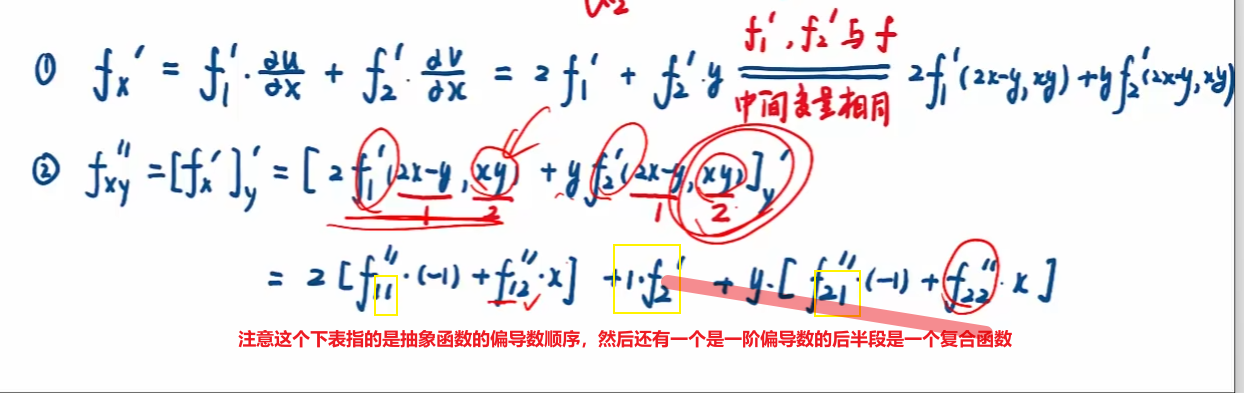 f₁′, f₂′与f
① fₓ′ = f₁′·∂u/∂x + f₂′·∂v/∂x = 2f₁′ + f₂′·y ═══ 2f₁′(2x-y, xy) + yf₂′(2x-y, xy)
中间变量相同
② f″xy = [fₓ′]′y = [2f₁′(2x-y, xy) + yf₂′(2x-y, xy)]′y
1 2 1 2
= 2[f₁₁″·(-1) + f₁₂″·x] + 1·f₂′ + y·[f₂₁″·(-1) + f₂₂″·x]
注意这个下表指的是抽象函数的偏导数顺序，然后还有一个是一阶偏导数的后半段是一个复合函数